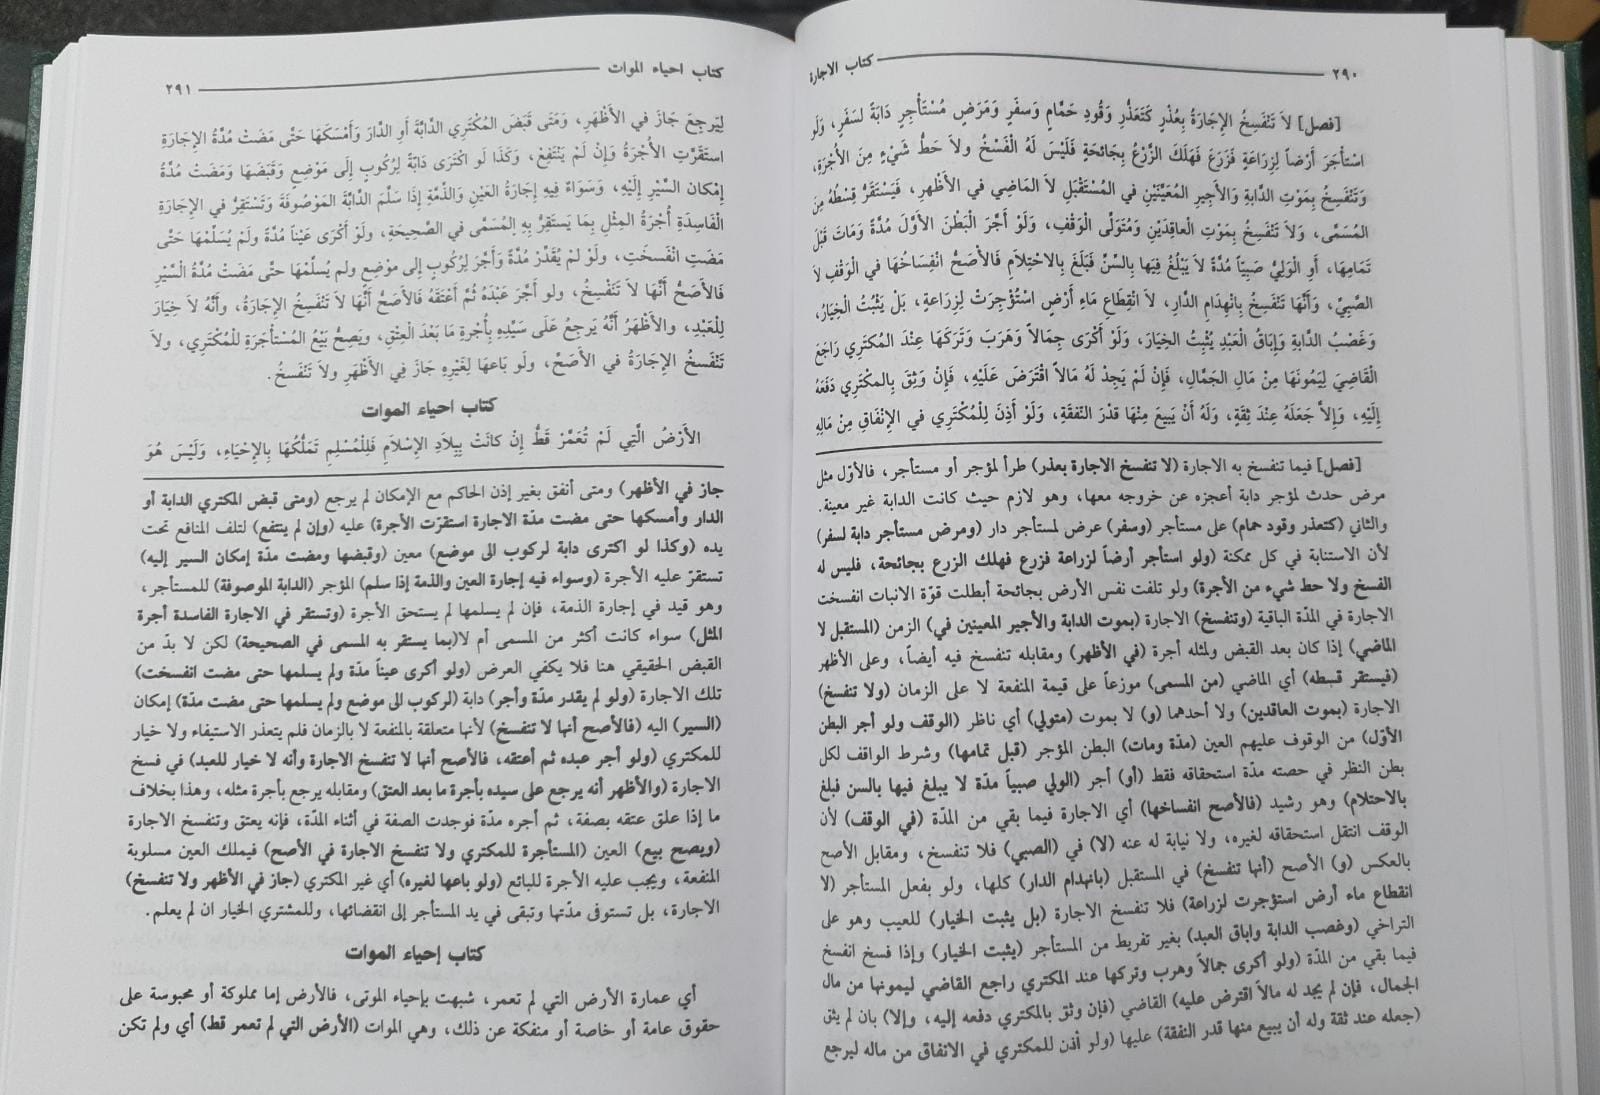 ٢٩٠ كتاب الاجارة
[فصل] لاَ تَنْفَسِخُ الإِجَارَةُ بِعُذْرٍ كَتَعَذُّرِ وَقُودِ حَمَّامٍ وَسَفَرٍ وَمَرَضِ مُسْتَأْجِرِ دَابَّةٍ لسَفَرٍ، وَلَو
اسْتَأْجَرَ أَرْضاً لِزِرَاعَةٍ فَزَرَعَ فَهَلَكَ الزَّرْعُ بِجَائحَةٍ فَلَيْسَ لَهُ الْفَسْخُ ولاَ حَطُّ شَيْءٍ مِنَ الأُجْرَةِ،
وَتَنْفَسِخُ بِمَوتِ الدَّابةِ وَالأَجِيرِ المُعَيَّنَيْنِ في المُسْتَقْبَلِ لاَ المَاضِي في الأَظْهرِ، فَيَسْتَقرُّ قِسْطُهُ مِنَ
المُسَمَّى، وَلاَ تَنْفَسِخُ بِمَوْتِ العَاقِدَيْنِ وَمُتَولِّى الْوَقْفِ، وَلَوْ أَجَّرَ الْبَطْنُ الأَوَّلُ مُدَّةً وَمَاتَ قَبْلَ
تَمَامِهَا، أَوِ الْوَلِيُّ صَبِيّاً مُدَّةً لاَ يَبْلُغُ فِيَها بِالسِّنِّ فَبَلَغَ بِالاحْتِلاَمِ فَالأصَحُّ انْفِسَاخُهَا في الْوَقْفِ لاَ
الصَّبِيِّ، وَأَنَّهَا تَنْفَسِخُ بِانْهِدَامِ الدَّارِ، لاَ انْقِطَاعِ مَاءِ أَرْضٍ اسْتُؤْجِرَتْ لِزِرَاعةٍ، بَلْ يَثْبُتُ الْخِيَارُ،
وَغَصْبُ الدَّابةِ وَإِبَاقُ الْعَبْدِ يُثْبِتُ الخِيَارَ، وَلَوْ أَكْرَى جِمَالاً وَهَرَبَ وَتَرَكَهَا عِنْدَ المُكتَرِي رَاجَعَ
القَاضِيَ لِيَمُونَهَا مِنْ مَالِ الجَمَّالِ، فَإِنْ لَم يَجِدْ لَهُ مَالاً اقْتَرَضَ عَلَيْهِ، فَإِنْ وَثِقَ بِالمكْتَرِي دَفَعَهُ
إِلَيْهِ، وَإِلاَّ جَعَلَهُ عِنْدَ ثِقَةٍ، وَلَهُ أَنْ يَبِيعَ مِنْهَا قَدْرَ النَّفقَةِ، وَلَوْ أَذِنَ لِلْمُكْتَرِي في الإِنْفَاقِ مِنْ مَالِهِ
[فصل] فيما تنفسخ به الاجارة (لا تنفسخ الاجارة بعذر) طرأ لمؤجر أو مستأجر، فالأوّل مثل
مرض حدث لمؤجر دابة أعجزه عن خروجه معها، وهو لازم حيث كانت الدابة غير معينة.
والثاني (كتعذر وقود حمام) على مستأجر (وسفر) عرض لمستأجر دار (ومرض مستأجر دابة لسفر)
لأن الاستنابة في كل ممكنة (ولو استأجر أرضاً لزراعة فزرع فهلك الزرع بجائحة، فليس له
الفسخ ولا حط شيء من الأجرة) ولو تلفت نفس الأرض بجائحة أبطلت قوّة الانبات انفسخت
الاجارة في المدّة الباقية (وتنفسخ) الاجارة (بموت الدابة والأجير المعينين في) الزمن (المستقبل لا
الماضي) إذا كان بعد القبض ولمثله أجرة (في الأظهر) ومقابله تنفسخ فيه أيضاً، وعلى الأظهر
(فيستقر قسطه) أي الماضي (من المسمى) موزعاً على قيمة المنفعة لا على الزمان (ولا تنفسخ)
الاجارة (بموت العاقدين) ولا أحدهما (و) لا بموت (متولي) أي ناظر (الوقف ولو أجر البطن
الأوّل) من الوقوف عليهم العين (مدّة ومات) البطن المؤجر (قبل تمامها) وشرط الواقف لكل
بطن النظر في حصته مدّة استحقاقه فقط (أو) أجر (الولي صبياً مدّة لا يبلغ فيها بالسن فبلغ
بالاحتلام) وهو رشيد (فالأصح انفساخها) أي الاجارة فيما بقي من المدّة (في الوقف) لأن
الوقف انتقل استحقاقه لغيره، ولا نيابة له عنه (لا) في (الصبي) فلا تنفسخ، ومقابل الأصح
بالعكس (و) الأصح (أنها تنفسخ) في المستقبل (بانهدام الدار) كلها، ولو بفعل المستأجر (لا
انقطاع ماء أرض استؤجرت لزراعة) فلا تنفسخ الاجارة (بل يثبت الخيار) للعيب وهو على
التراخي (وغصب الدابة واباق العبد) بغير تفريط من المستأجر (يثبت الخيار) وإذا فسخ انفسخ
فيما بقي من المدّة (ولو أكرى جمالاً وهرب وتركها عند المكتري راجع القاضي ليمونها من مال
الجمال، فإن لم يجد له مالاً اقترض عليه) القاضي (فإن وثق بالمكتري دفعه إليه، وإلا) بان لم يثق
(جعله عند ثقة وله أن يبيع منها قدر النفقة) عليها (ولو أذن للمكتري في الانفاق من ماله ليرجع
كتاب احياء الموات ٢٩١
لِيَرجِعَ جَازَ في الأَظْهَرِ، وَمَتَى قَبَضَ المُكْتَرِي الدَّابَّةَ أَوِ الدَّارَ وَأَمْسَكَهَا حَتَّى مَضَتْ مُدَّةُ الإِجَارَةِ
اسْتَقَرَّتِ الأُجْرَةُ وَإِنْ لَمْ يَنْتَفِعْ، وَكَذَا لَوِ اكْتَرَى دَابَّةً لِرُكُوبٍ إِلَى مَوْضِعٍ وَقَبَضَهَا وَمَضَتْ مُدَّةُ
إِمْكَانِ السَّيْرِ إِلَيْهِ، وَسَوَاءٌ فِيهِ إِجَارَةُ العَيْنِ وَالذِّمَّةِ إِذَا سَلَّمَ الدَّابَّةَ المَوْصُوفَةَ وَتَسْتَقِرُّ في الإِجَارَةِ
الْفَاسِدَةِ أُجْرَةُ المِثْلِ بِمَا يَستَقِرُّ بِهِ المُسَمَّى في الصَّحِيحَةِ، ولَوْ أَكْرَى عَيْناً مُدَّةً ولَمْ يُسَلِّمْهَا حَتَّى
مَضَتِ انْفَسَخَتِ، ولَوْ لَمْ يُقَدِّرْ مُدَّةً وَأَجَّرَ لِرُكُوبٍ إلى موْضِعٍ ولم يُسلِّمْهَا حتَّى مَضَتْ مُدَّةُ السَّيْرِ
فَالأَصَحُّ أَنَّهَا لاَ تَنْفَسِخُ، ولو أَجَّرَ عَبْدَهُ ثُمَّ أَعْتَقَهُ فَالأصَحُّ أَنَّهَا لاَ تَنْفَسِخُ الإِجَارَةُ، وأَنَّهُ لاَ خِيَارَ
لِلْعَبْدِ، والأَظْهَرُ أَنَّهُ يَرجِعُ عَلَى سَيِّدِهِ بِأُجْرةِ مَا بَعْدَ العِتْقِ، ويَصِحُّ بَيْعُ المُسْتَأجَرَةِ لِلْمُكْتَرِي، ولاَ
تَنْفَسخُ الإِجَارَةُ في الأَصَحِّ، ولَو بَاعَها لِغَيْرِهِ جَازَ فِي الأَظْهَرِ ولاَ تَنْفَسخُ.
كتاب احياء الموات
الأَرْضُ الَّتِي لَمْ تُعَمَّرْ قَطُّ إِنْ كانَتْ بِبِلاَدِ الإِسْلاَمِ فَلِلْمُسْلِمِ تَمَلُّكُهَا بِالإِحْيَاءِ، وَلَيْسَ هُوَ
جاز في الأظهر) ومتى أنفق بغير إذن الحاكم مع الإمكان لم يرجع (ومتى قبض المكتري الدابة أو
الدار وأمسكها حتى مضت مدّة الاجارة استقرّت الأجرة) عليه (وإن لم ينتفع) لتلف المنافع تحت
يده (وكذا لو اكترى دابة لركوب الى موضع) معين (وقبضها ومضت مدّة إمكان السير إليه)
تستقرّ عليه الأجرة (وسواء فيه إجارة العين والذمة إذا سلم) المؤجر (الدابة الموصوفة) للمستأجر،
وهو قيد في إجارة الذمة، فإن لم يسلمها لم يستحق الأجرة (وتستقر في الاجارة الفاسدة أجرة
المثل) سواء كانت أكثر من المسمى أم لا(بما يستقر به المسمى في الصحيحة) لكن لا بدّ من
القبض الحقيقي هنا فلا يكفي العرض (ولو أكرى عيناً مدّة ولم يسلمها حتى مضت انفسخت)
تلك الاجارة (ولو لم يقدر مدّة وأجر) دابة (لركوب الى موضع ولم يسلمها حتى مضت مدّة) إمكان
(السير) اليه (فالأصح أنها لا تنفسخ) لأنها متعلقة بالمنفعة لا بالزمان فلم يتعذر الاستيفاء ولا خيار
للمكتري (ولو أجر عبده ثم أعتقه، فالأصح أنها لا تنفسخ الاجارة وأنه لا خيار للعبد) في فسخ
الاجارة (والأظهر أنه يرجع على سيده بأجرة ما بعد العتق) ومقابله يرجع بأجرة مثله، وهذا بخلاف
ما إذا علق عتقه بصفة، ثم أجره مدّة فوجدت الصفة في أثناء المدّة، فإنه يعتق وتنفسخ الاجارة
(ويصح بيع) العين (المستأجرة للمكتري ولا تنفسخ الاجارة في الأصح) فيملك العين مسلوبة
المنفعة، ويجب عليه الأجرة للبائع (ولو باعها لغيره) أي غير المكتري (جاز في الأظهر ولا تنفسخ)
الاجارة، بل تستوفى مدّتها وتبقى في يد المستأجر إلى انقضائها، وللمشتري الخيار ان لم يعلم.
كتاب إحياء الموات
أي عمارة الأرض التي لم تعمر، شبهت بإحياء الموتى، فالأرض إما مملوكة أو محبوسة على
حقوق عامة أو خاصة أو منفكة عن ذلك، وهي الموات (الأرض التي لم تعمر قط) أي ولم تكن